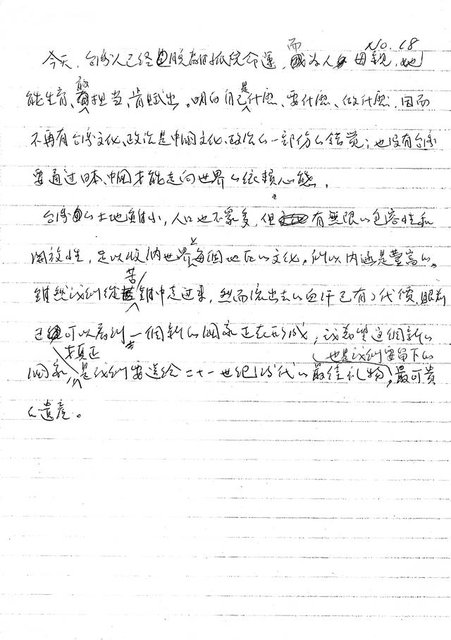 No. 18
今天,台灣人已經脫離孤兒的命運,而成為人母親,她
能生育、敢担当、肯賦出。明白自己是什麼、要什麼、做什麼,因而
不再有台灣文化、政治是中國文化、政治的一部份的錯覺;也沒有台灣
要通過日本、中國才能走向世界的依賴心態。
台灣的土地雖小,人口也不眾多,但有無限的包容性和
開放性,足以收納世界上每個地區的文化。所以內涵是豐富的。
雖然我們從苦難中走過來,然而流出去的血汗已有了代價,眼前
已經可以看到一個新的國家正在形成,我希望這個新的
國家才真正是我們要送給二十一世紀後代的最佳禮物,也是我們要留下的最可貴
的遺產。